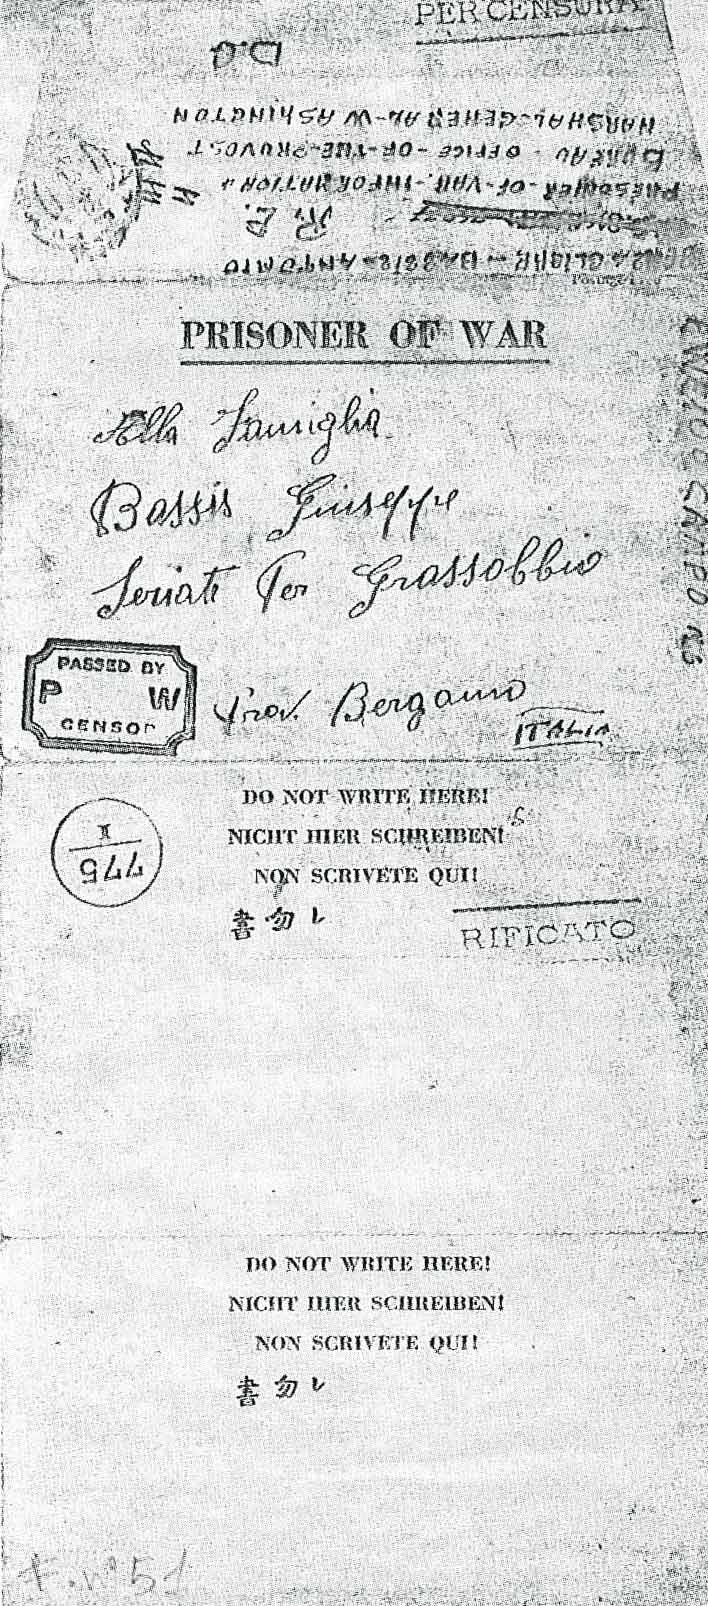 PER CENSURA
P.O.
MARSHAL-GENERAL WASHINGTON
BUREAU - OFFICE-OF-THE-PROVOST.
PRISONER-OF-WAR-INFORMATION"
BASSIS-ANTONIO
PRISONER OF WAR
Alla Famiglia
Bassis Giuseppe
Seriate Per Grassobbio
Prov. Bergamo
ITALIA
CAMPO
PASSED BY
P W
CENSOR
DO NOT WRITE HERE!
NICHT HIER SCHREIBEN!
NON SCRIVETE QUI!
書勿レ
I
775
RIFICATO
DO NOT WRITE HERE!
NICHT HIER SCHREIBEN!
NON SCRIVETE QUI!
書勿レ